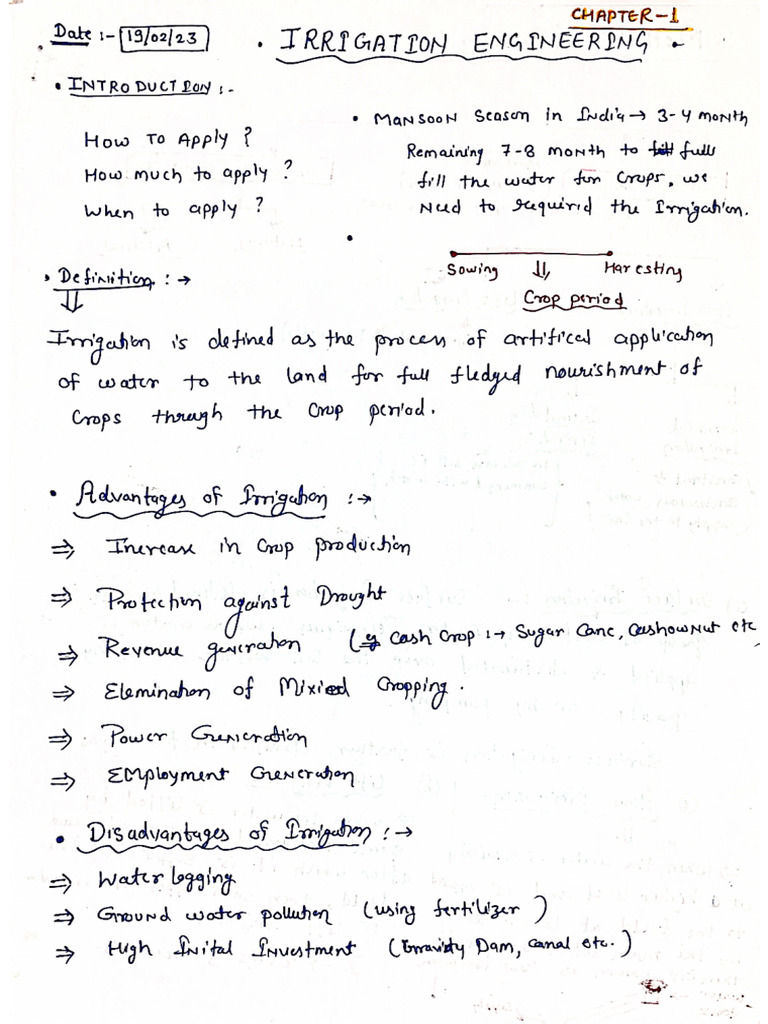 CHAPTER-1
Date :- 19/02/23
IRRIGATION ENGINEERING
• INTRODUCTION :-
How To Apply ?
How much to apply ?
When to apply ?
• MANSOON Season in India → 3-4 month
Remaining 7-8 month to full
fill the water for crops, we
Need to required the Irrigation.
Sowing ⇓ Haresting
Crop period
• Definition :→
⇓
Irrigation is defined as the process of artifical application
of water to the land for full fledged nourishment of
crops through the crop period.
• Advantages of Irrigation :→
⇒ Increase in crop production
⇒ Protection against Drought
⇒ Revenue generation (eg cash crop :→ Sugar Canc, CashowNut etc
⇒ Elemination of Mixied Cropping.
⇒ Power Generation
⇒ EMployment Generation
• Disadvantages of Irrigation :→
⇒ Water logging
⇒ Ground water pollution (using fertilizer)
⇒ High Inital Investment (Gravidy Dam, canal etc.)